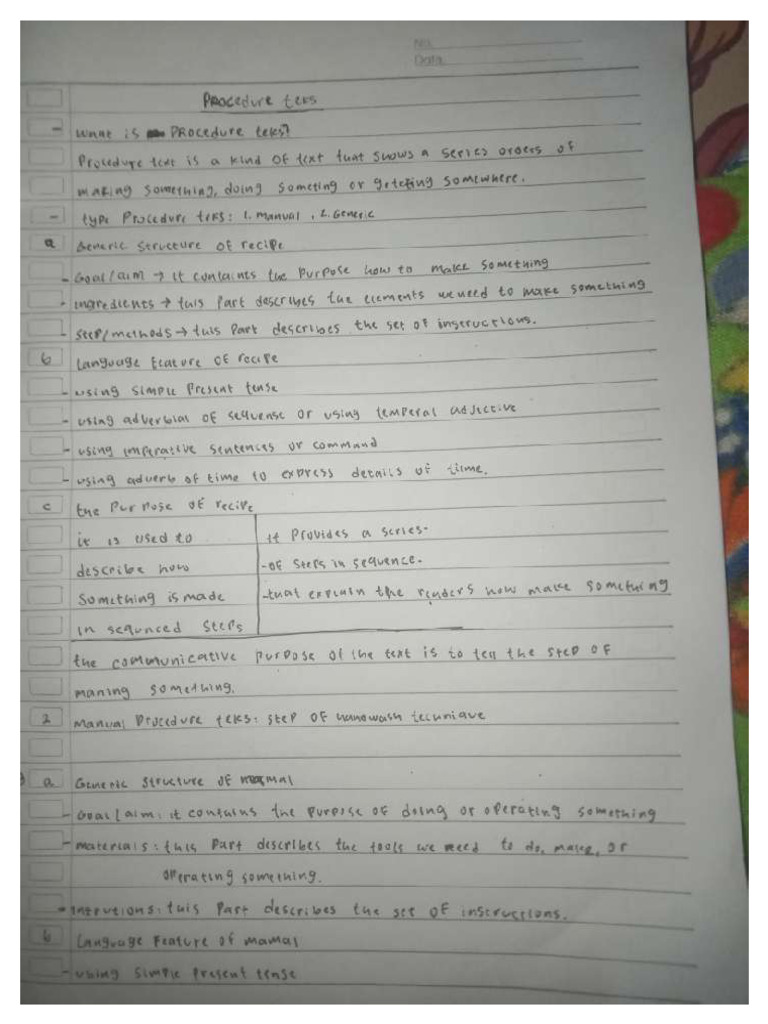 No.
Date
Procedure teks
- What is Procedure teks?
Procedure text is a kind of text that shows a series orders of
making something, doing someting or getefing somewhere.
- type Procedure teks: 1. Manual, 2. Generic
a Generic structure of recipe
- Goal/aim → it containes the purpose how to make something
- ingredients → this part describes the elements we need to make something
- steep/methods → this part describes the set of instructions.
b Language feature of recipe
- using simple present tense
- using adverbial of sequense or using temperal adjective
- using imperative sentences or command
- using adverb of time to express details of time.
c the purpose of recipe
it is used to
describe how
something is made
in sequnced steps
it provides a series-
-of steps in sequence.
-that explain the readers how make something
the communicative purpose of the text is to tell the step of
maning something.
2 Manual Procedure teks: step of handwash technique
a Generic structure of manual
- Goal/aim: it contains the purpose of doing or operating something
- materials: this part describes the tools we need to do, make, or
operating something.
- Intrutions: this part describes the set of instructions.
b Language feature of manual
- using simple present tense